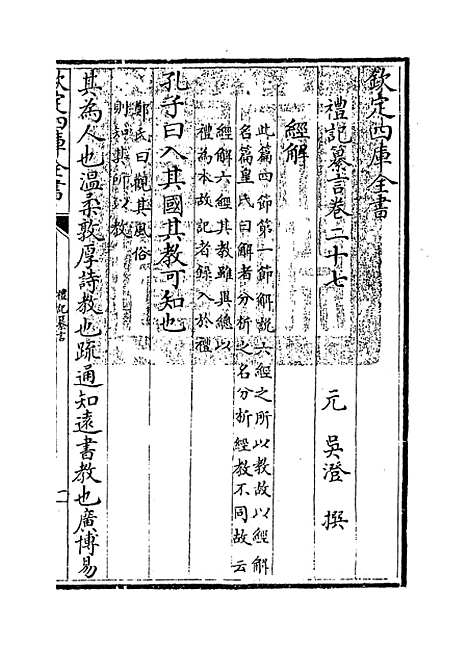 欽定四庫全書
禮記纂言卷二十七
元 吳澄 撰
經解
此篇四節第一節解說六經之所以教故以經解
名篇皇氏曰解者分析之名分析經教不同故云
經解六經其教雖異總以
禮為本故記者錄入於禮
孔子曰入其國其教可知也
鄭氏曰觀其風俗
則知其所以教
其為人也温柔敦厚詩教也疏通知遠書教也廣博易
欽定四庫全書
禮記纂言
一